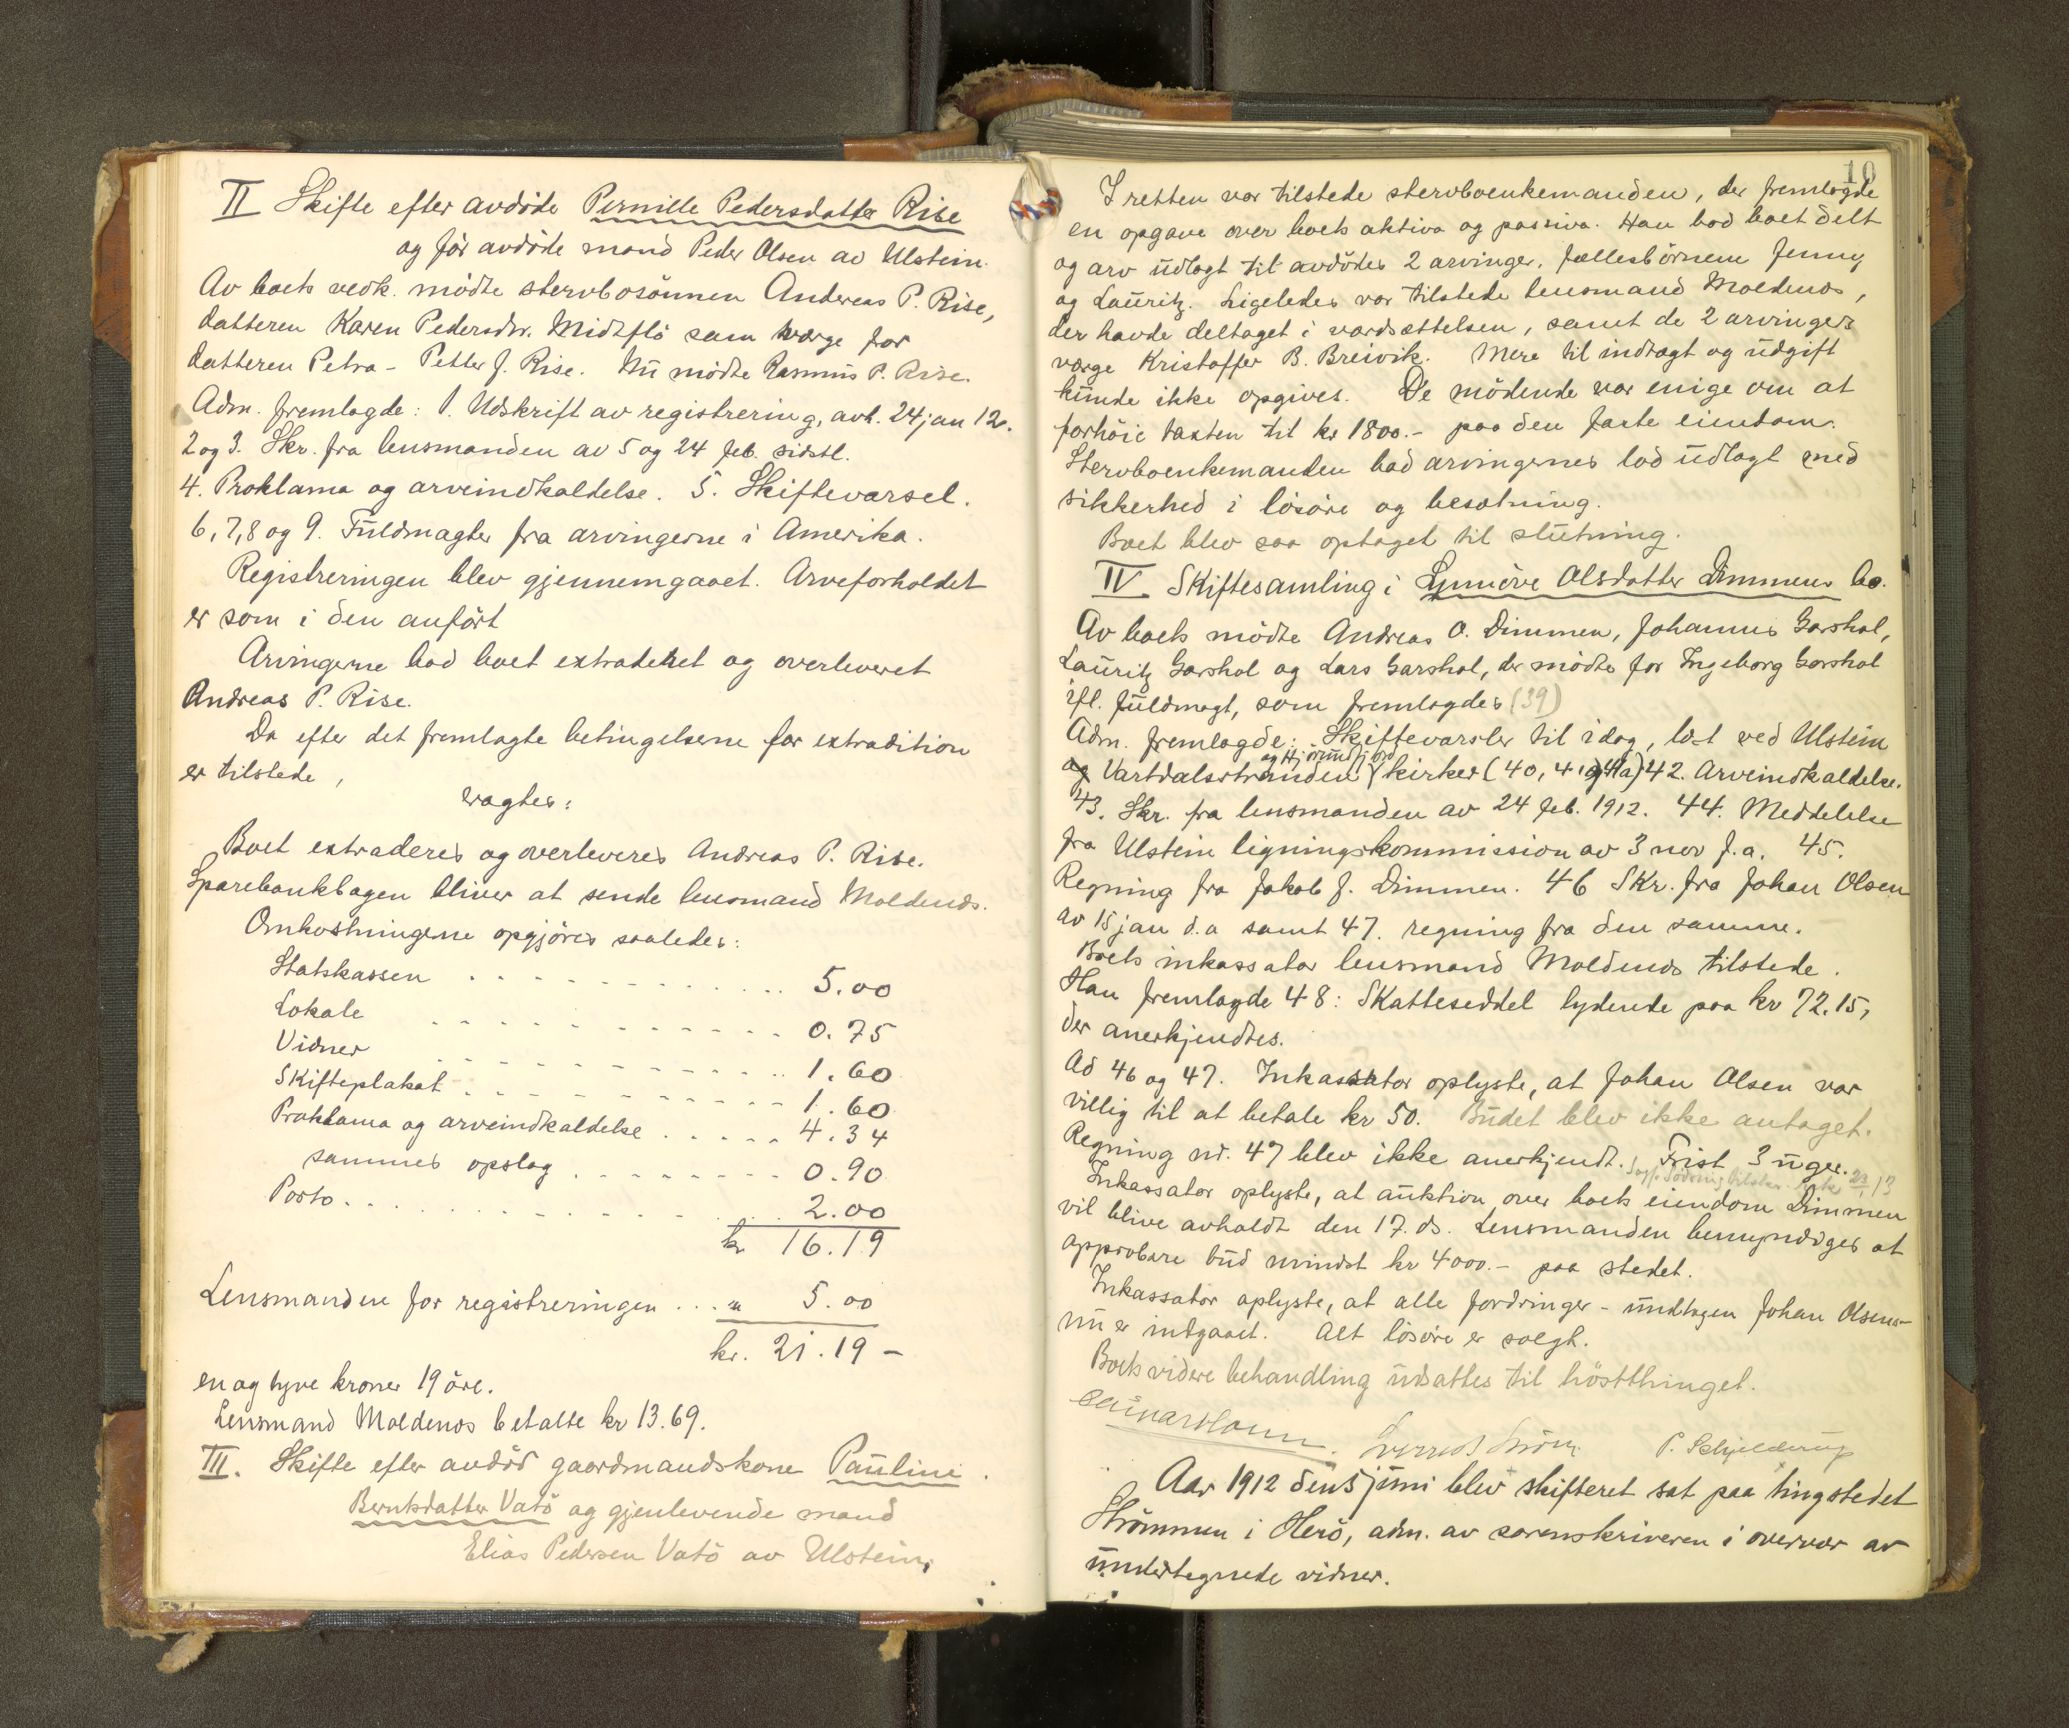 II Skifte efter avdöde Pernille Pedersdatter Rise
og för avdöde mand Peder Olsen av Ulstein.
Av boets vedk. mödte stervbosönnen Andreas P. Rise,
datteren Karen Pedersdtr. Midtflö som værge for
datteren Petra - Petter J. Rise. Nu mödte Rasmus P. Rise.
Adm. fremlagde: 1. Utskrift av registrering, avh. 24 jan 12.
2 og 3. Skr. fra lensmanden av 5 og 24 feb. sidstl.
4. Proklama og arveindkaldelse. 5. Skiftevarsel.
6, 7, 8 og 9. Fuldmagter fra arvingerne i Amerika.
Registreringen blev gjennemgaaet. Arveforholdet
er som i den anfört
Arvingerne bad boet extraderet og overleveret
Andreas P. Rise.
Da efter det fremlagte betingelserne for extradition
er tilstede,
vagtes:
Boet extraderes og overleveres Andreas P. Rise.
Sparebankbogen bliver at sende lensmand Moldenæs.
Omkostningerne opgjöres saaledes:
Statskassen 5.00
Lokale 0.75
Vidner 1.60
Skifteplakat 1.60
Proklama og arveindkaldelse 4.34
sammes opslag 0.90
Porto 2.00
kr 16.19
Lensmanden for registreringen ... " 5.00
kr. 21.19 -
en og tyve kroner 19 öre.
Lensmand Moldenæs betalte kr 13.69.
III. Skifte efter avdöd gaardmandskone Pauline
Berntsdatter Vatö og gjenlevende mand
Elias Pedersen Vatö av Ulstein.
10
I retten var tilstede stervboenkemanden, der fremlagde
en opgave over boets aktiva og passiva. Han bad boet delt
og arv udlagt til avdödes 2 arvinger, fællesbörnene Jenny
og Lauritz. Ligeledes var tilstede lensmand Moldenæs,
der havde deltaget i værdsættelsen, samt de 2 arvingers
værge Kristoffer B. Breivik. Mere til indtægt og udgift
kunde ikke opgives. De mödende var enige om at
forhöie taxten til kr 1800.- paa den faste eiendom.
Stervboenkemanden bad arvingernes lod udlagt med
sikkerhed i lösöre og besætning.
Boet blev saa optaget til slutning.
IV Skiftesamling i Synnöve Olsdatter Dimmens bo.
Av boets mödte Andreas O. Dimmen, Johannes Garshol,
Lauritz Garshol og Lars Garshol, der mödte for Ingeborg Garshol
ifl. fuldmagt, som fremlagdes (39)
Adm. fremlagde: Skiftevarsler til idag, læst ved Ulstein
og Hjörundfjord
og Vartdalsstranden kirker (40, 41 og 41a) 42. Arveindkaldelse.
43. Skr. fra lensmanden av 24 feb. 1912. 44. Meddelelse
fra Ulstein ligningskommission av 3 nov f.a. 45.
Regning fra Jakob J. Dimmen. 46 Skr. fra Johan Olsen
av 15 jan d.a samt 47. regning fra den samme.
Boets inkassator lensmand Moldenæs tilstede.
Han fremlagde 48: Skatteseddel lydende paa kr 72.15,
der anerkjendtes.
Ad 46 og 47. Inkassator oplyste, at Johan Olsen var
villig til at betale kr 50. Budet blev ikke antaget.
Regning nr. 47 blev ikke anerkjendt. Frist 3 uger.
23/1 13
Inkassator oplyste, at auktion over boets eiendom Dimmen
vil blive avholdt den 17. ds. Lensmanden bemyndiges at
approbere bud mindst kr 4000.- paa stedet.
Inkassator oplyste, at alle fordringer - undtagen Johan Olsens -
nu er indgaaet. Alt lösöre er solgt.
Boets videre behandling udsattes til höstthinget.
P. Schjelderup
Aar 1912 den 5 juni blev skifteret sat paa tingstedet
Strömmen i Herö, adm. av sorenskriveren i overvær av
undertegnede vidner.